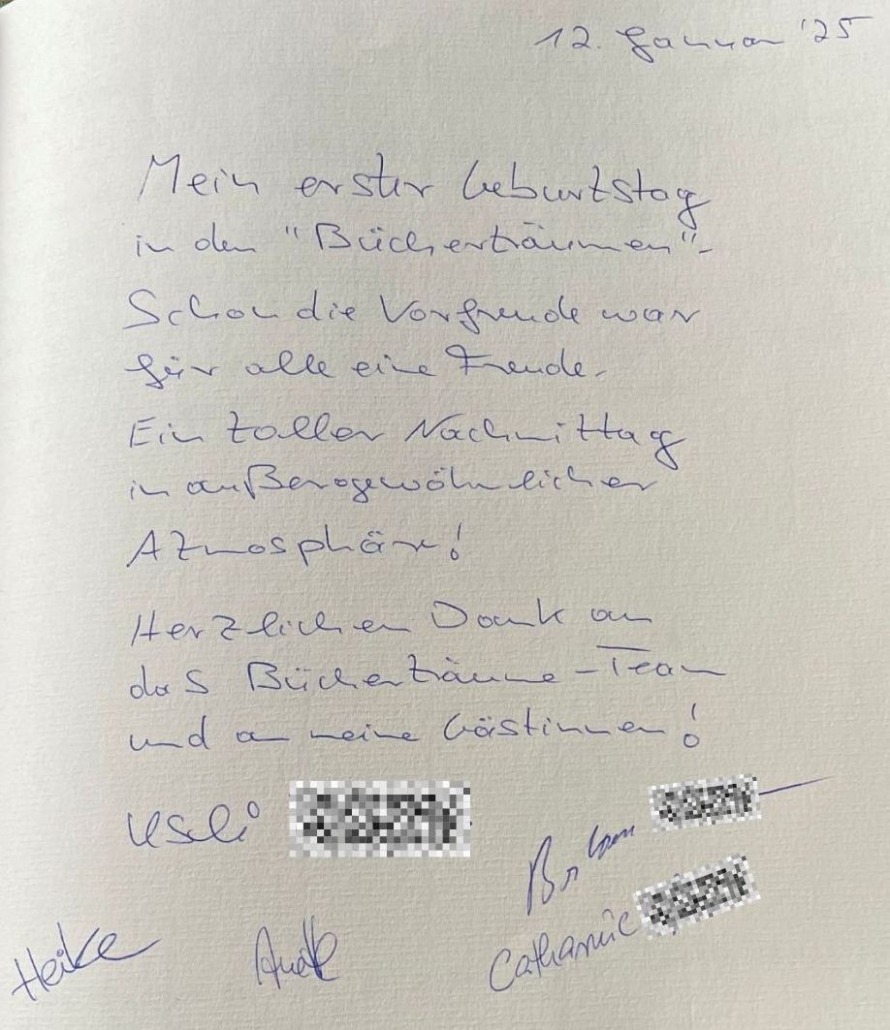 12. Januar '25
Mein erster Geburtstag
in den "Bücherträumen"-
Schon die Vorfreude war
für alle eine Freude.
Ein toller Nachmittag
in außergewöhnlicher
Atmosphäre!
Herzlichen Dank an
das Bücherträume-Team
und an meine Gästinnen!
Heike
Catharine